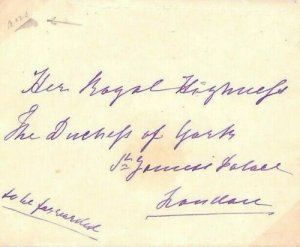 Her Royal Highness
The Duchess of York
St. James's Palace
London
to be forwarded